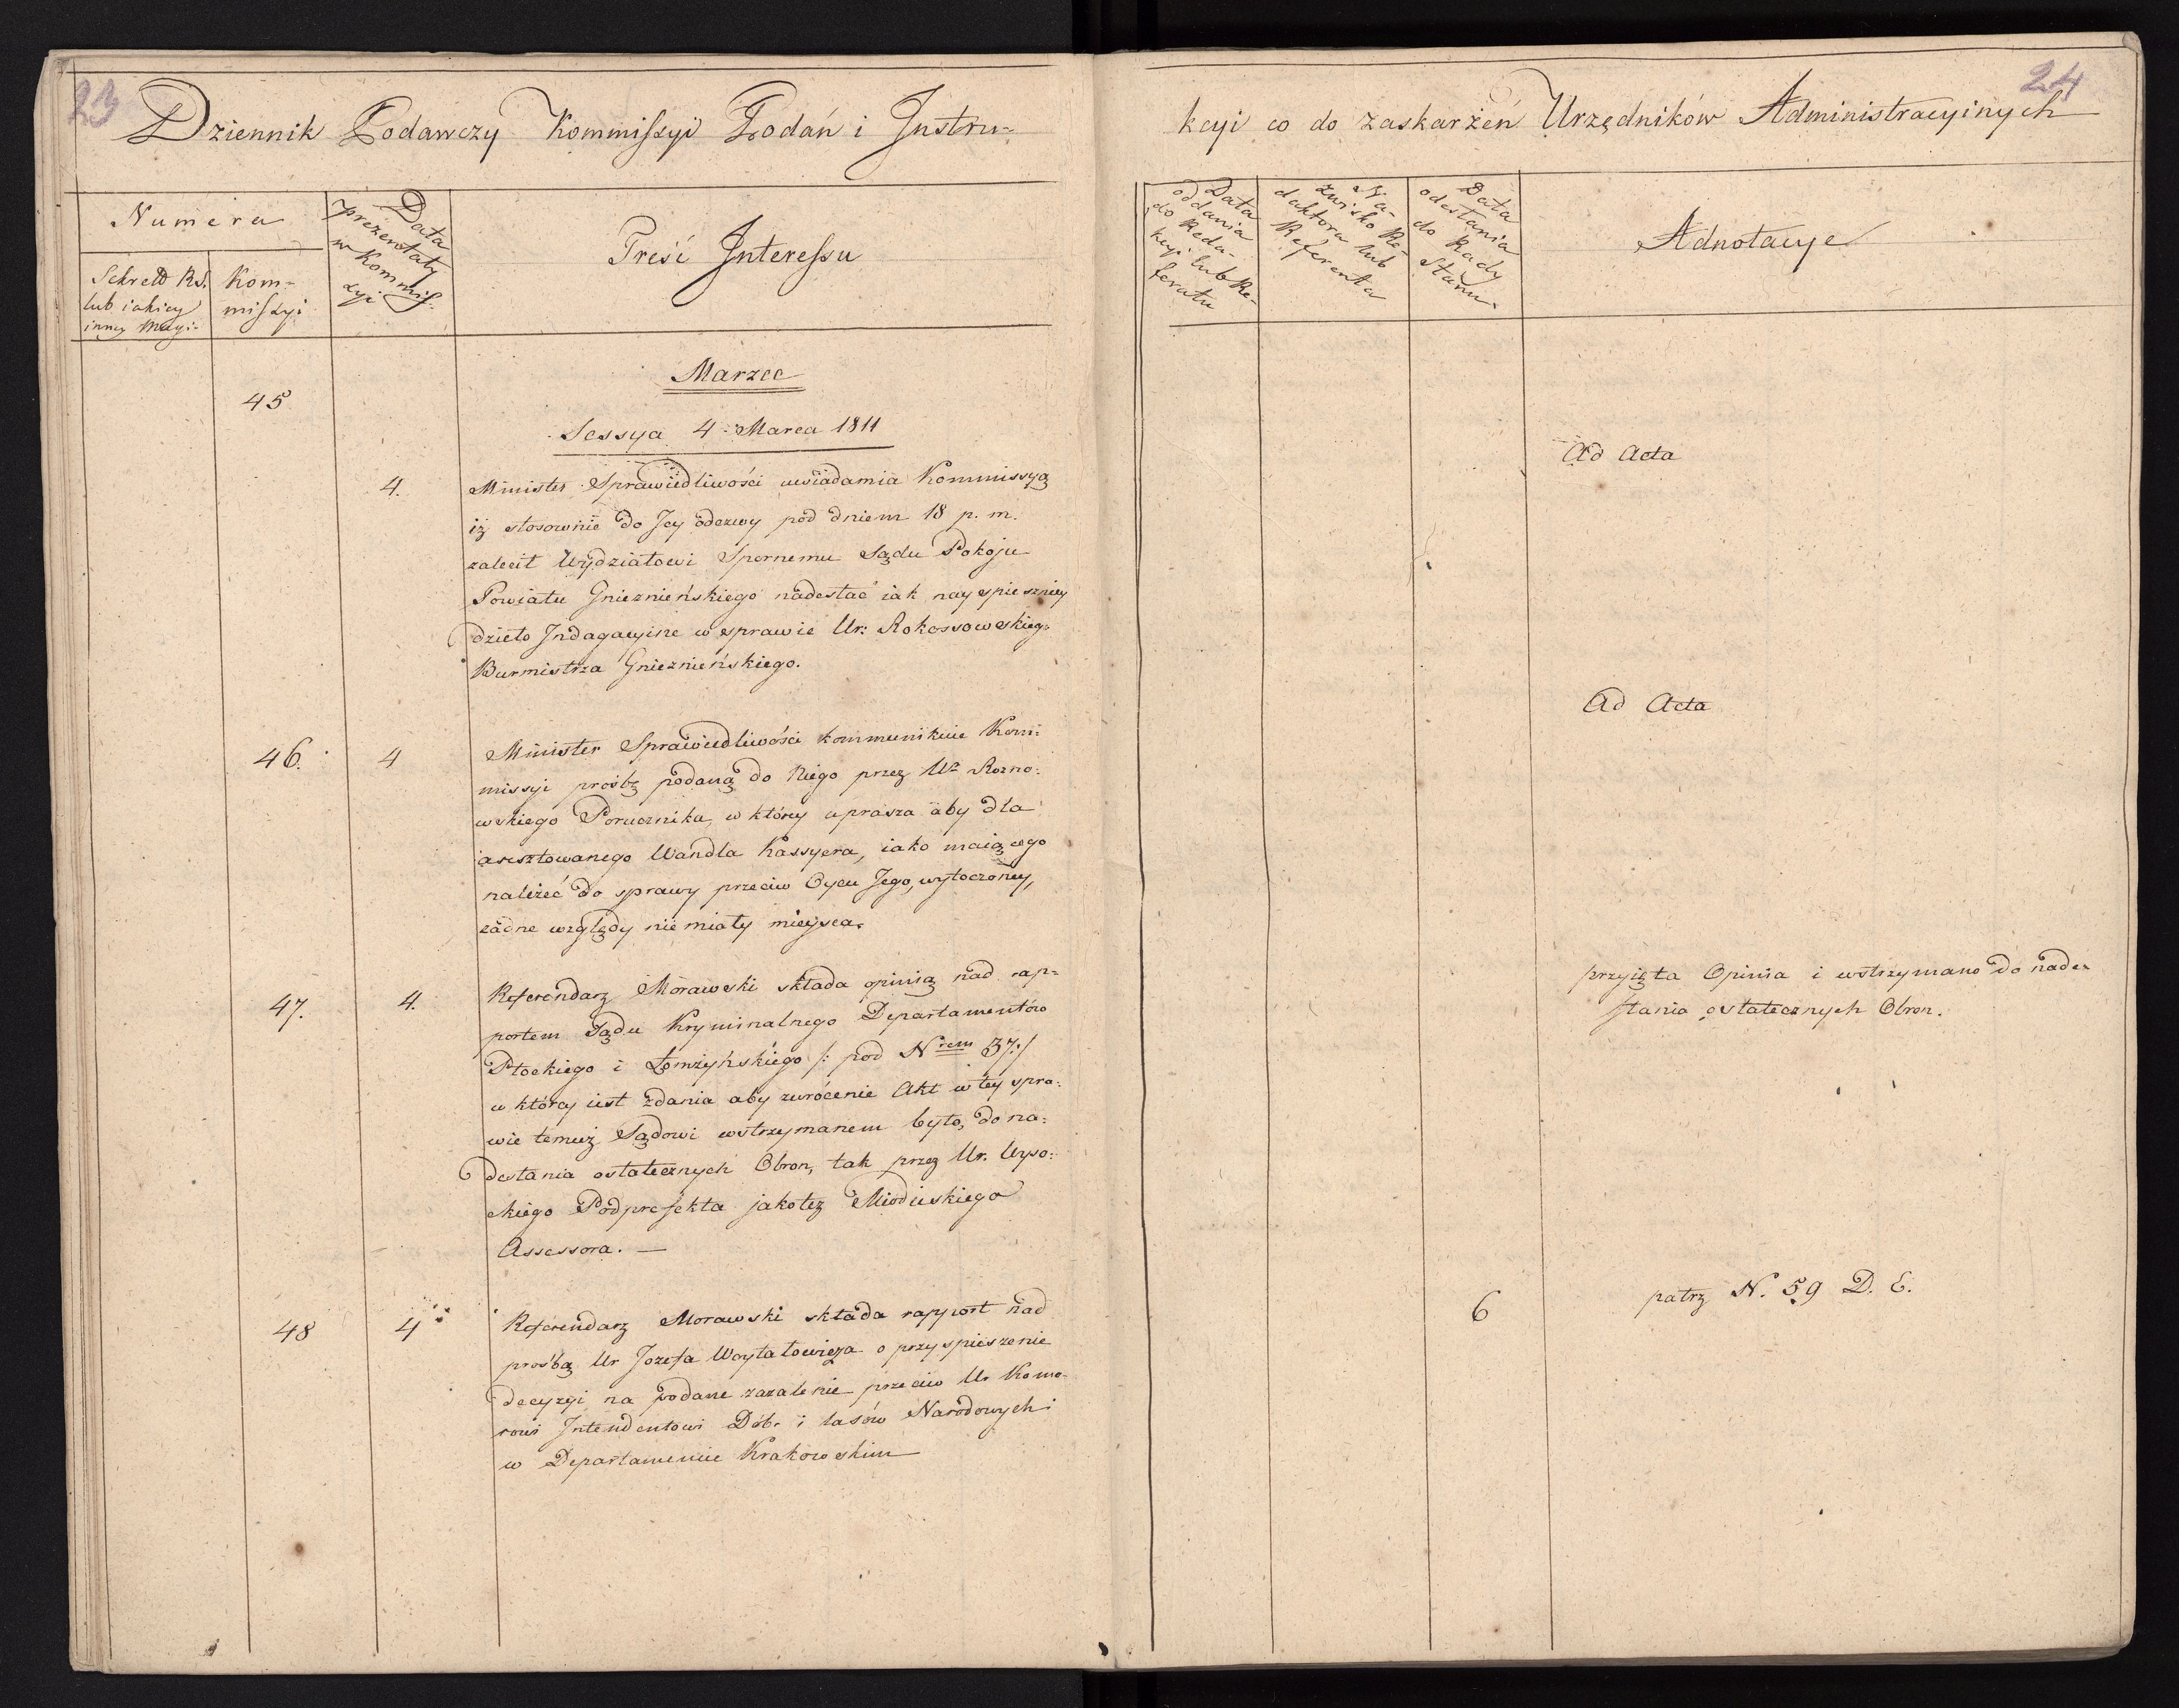 23
Dziennik Podawczy Kommissyi Podań i Instru-
Numera
Sekret Rs.
lub iakiey
inney Magi-
Kom-
missyi
Data
prezentaty
w Kommis-
syi
Treść Interessu
Marzec
45
Sessya 4 Marca 1811
4. Minister Sprawiedliwości uwiadamia Kommissyą
iż stosownie do Jey odezwy pod dniem 18 p. m.
zalecił Wydziałowi Spornemu Sądu Pokoju
Powiatu Gnieznieńskiego nadesłać iak nayspieszniey
dzieło Indagacyine w sprawie Ur: Rokossowskiego
Burmistrza Gnieznieńskiego.
46. 4 Minister Sprawiedliwości kommunikuie Kom-
missyi prośbę podaną do Niego przez Ur Rozno-
wskiego Porucznika, w którey uprasza aby dla
aresztowanego Wandla Kassyera, iako maiącego
należeć do sprawy przeciw Oycu Jego, wytoczoney,
żadne względy nie miały mieysca.
47. 4. Referendarz Morawski składa opinią nad rap-
portem Sądu Kryminalnego Departamentów
Płockiego i Łomżyńskiego /: pod Nrem 37:/
w którey iest zdania aby zwrócenie Akt w tey spra-
wie temuż Sądowi wstrzymanem było, do na-
desłania ostatecznych Obron, tak przez Ur. Wyso-
ckiego Podprefekta jakoteż Mioduskiego
Assessora. —
48 4 Referendarz Morawski składa rapport nad
prośbą Ur Jozefa Woytałowicza o przyspieszenie
decyzyi na podane zażalenie przeciw Ur Komo-
rowi Intendentowi Dób. i lasów Narodowych
w Departamencie Krakowskim
24
kcyi co do zaskarżeń Urzędników Administracyinych
Data
oddania
do Reda-
kcyi lub Re-
feratu
Na-
zwisko Re-
daktora lub
Referenta
Data
odesłania
do Rady
Stanu.
Adnotacye
Ad Acta
Ad Acta
przyięta Opinia i wstrzymano do nade-
słania ostatecznych Obron.
6 patrz N. 59 D. E.